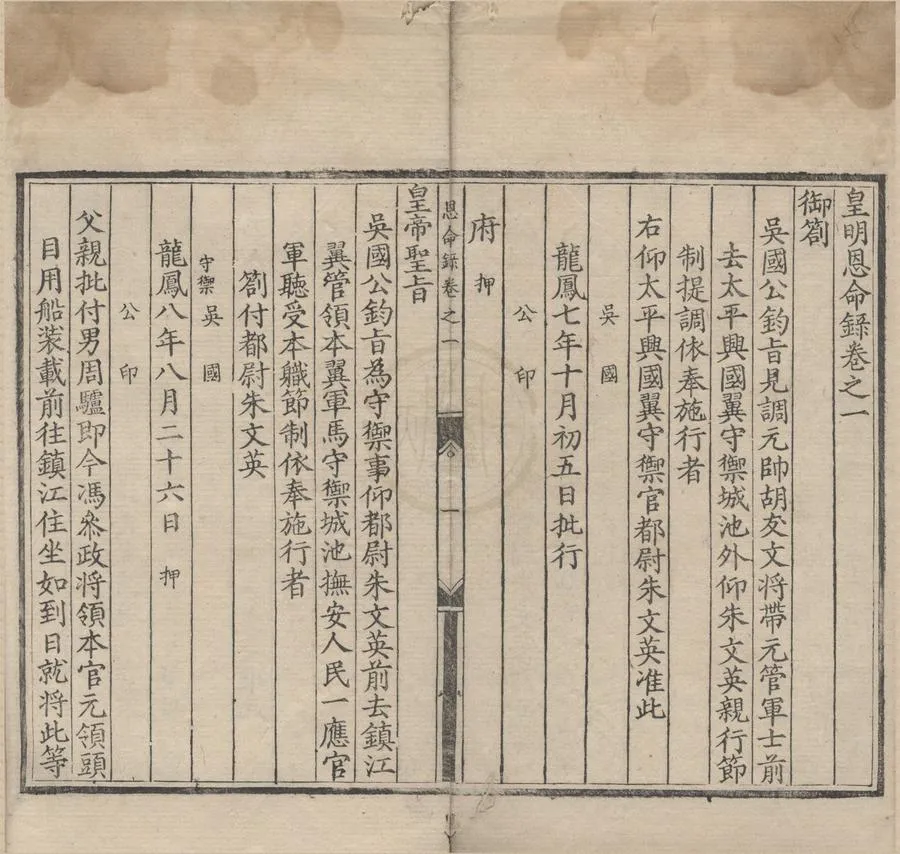 皇明恩命錄卷之一
御劄
吳國公鈞旨見調元帥胡友文將帶元管軍士前
去太平興國翼守禦城池外仰朱文英親行節
制提調依奉施行者
右仰太平興國翼守禦官都尉朱文英准此
吳國
龍鳳七年十月初五日批行
公印
府押
恩命錄卷之一
一
皇帝聖旨
吳國公鈞旨為守禦事仰都尉朱文英前去鎮江
翼管領本翼軍馬守禦城池撫安人民一應官
軍聽受本職節制依奉施行者
劄付都尉朱文英
守禦吳國
龍鳳八年八月二十六日押
公印
父親批付男周驢即今馮叅政將領本官元領頭
目用船裝載前往鎮江住坐如到日就將此等